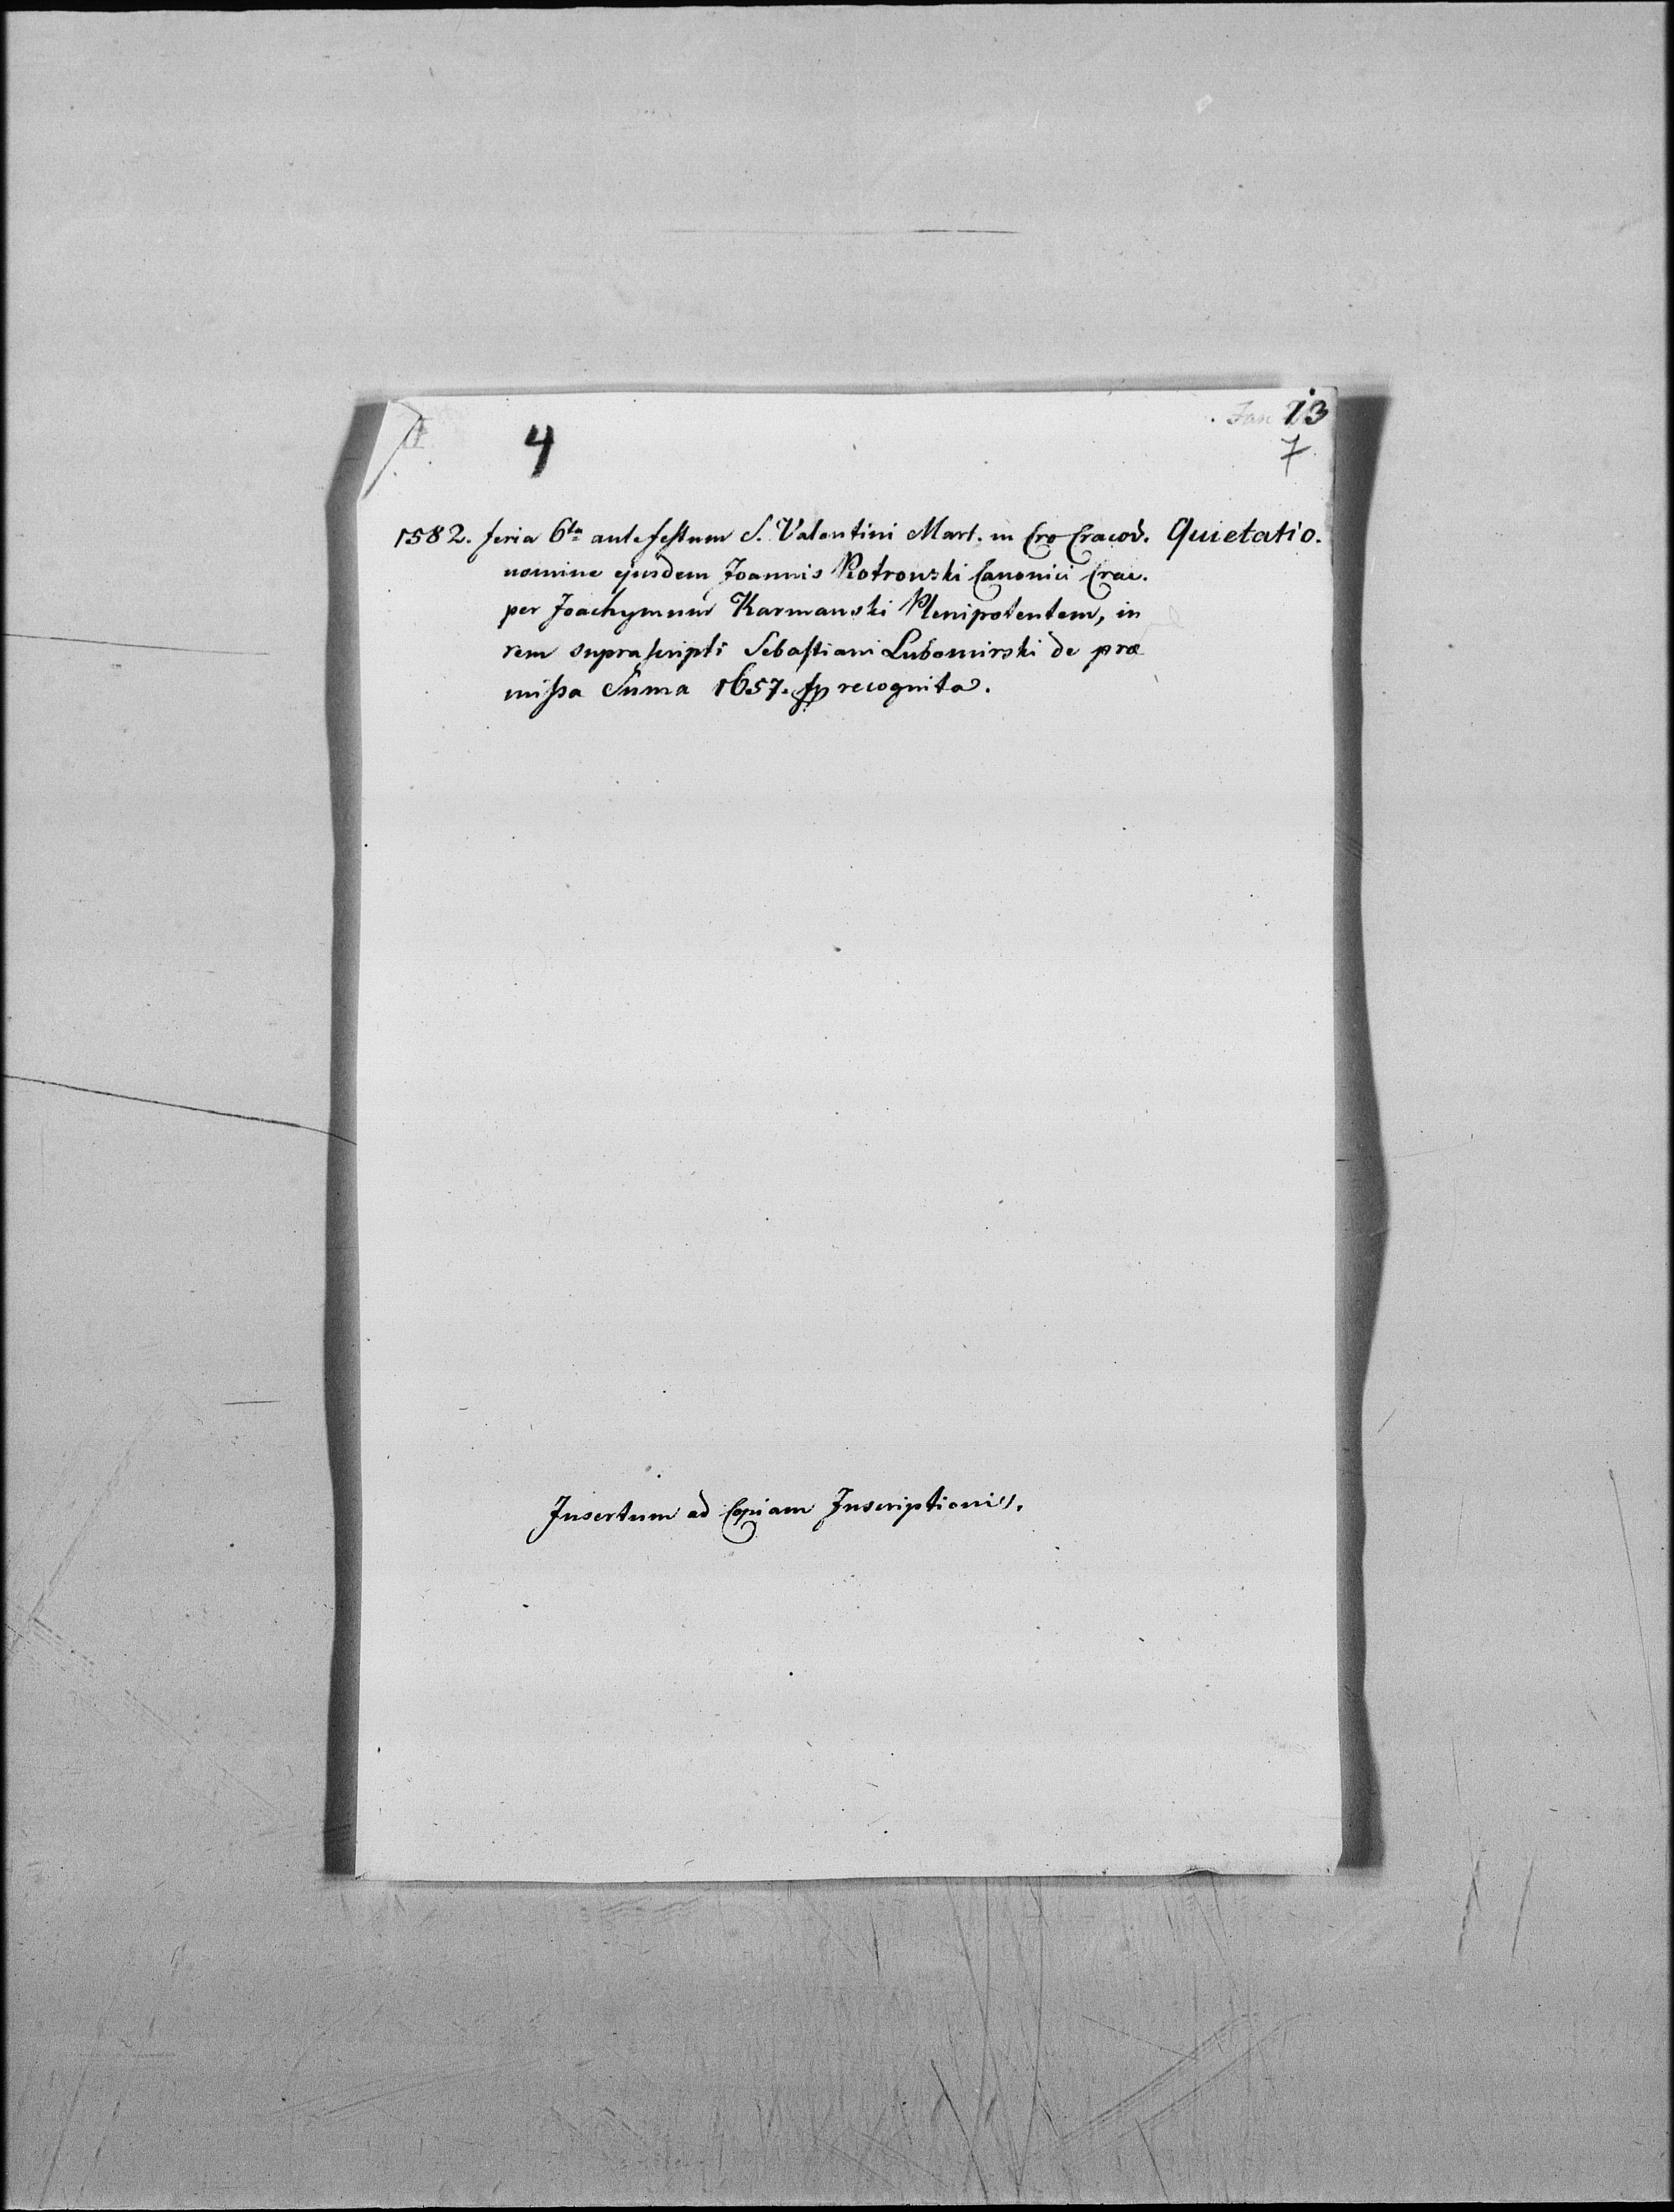 13
4
7
1582. feria 6ta ante festum S. Valentini Mart. in Cro Cracov. Quietatio.
nomine ejusdem Joannis Piotrowski Canonici Crac.
per Joachymum Karmanski Plenipotentem, in
rem suprascripti Sebastiani Lubomirski de præ
missa Suma 1657. fp recognita.
Insertum ad Copiam Inscriptionis.